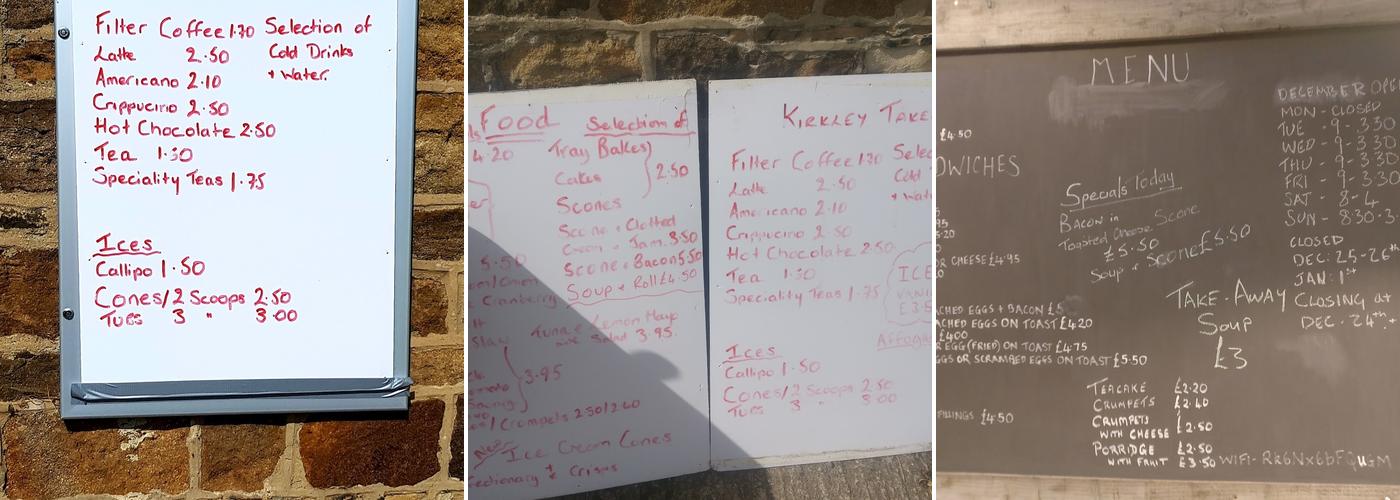 Filter Coffee 1.70 Selection of
Latte 2.50 Cold Drinks
Americano 2.10 + Water.
Cappucino 2.50
Hot Chocolate 2.50
Tea 1.30
Speciality Teas 1.75
Ices
Callipo 1.50
Cones/2 Scoops 2.50
Tubs 3 " 3.00
Food Selection of
4.20 Tray Bakes
Cakes 2.50
Scones
Scone + Clotted
Cream + Jam. 3.50
5.50 Scone + Bacon 5.50
Cranberry Soup + Roll £4.50
Slaw Tuna + Lemon Mayo
Salad 3.95.
3.95
Crumpets 2.30/2.60
New Ice Cream Cones
+ Crisps
KIRKLEY TAKE
Filter Coffee 1.70 Selec
Latte 2.50 Cold
Americano 2.10 + Wat
Cappucino 2.50
Hot Chocolate 2.50
Tea 1.30
Speciality Teas 1.75
ICE
£3.5
Affoga
Ices
Callipo 1.50
Cones/2 Scoops 2.50
Tubs 3 " 3.00
MENU
£4.50
DWICHES
5.20
OR CHEESE £4.95
CHED EGGS + BACON £5
CHED EGGS ON TOAST £4.20
£4.00
R EGG (FRIED) ON TOAST £4.75
GGS OR SCRAMBED EGGS ON TOAST £5.50
FILLINGS £4.50
Specials Today
Bacon in
Toasted Cheese Scone
£5.50
Soup + Scone £5.50
TAKE-AWAY
Soup
£3
TEACAKE £2.20
CRUMPETS £2.40
CRUMPETS
WITH CHEESE £2.50
PORRIDGE £2.50
WITH FRUIT £3.50
DECEMBER OPE
MON - CLOSED
TUE - 9-3.30
WED - 9-3.30
THU - 9-3.30
FRI - 9-3.30
SAT - 8-4
SUN - 8:30-3
CLOSED
DEC: 25-26th
JAN: 1st
CLOSING at
DEC. 24th
WIFI- Rk6Nx6bFQuGM